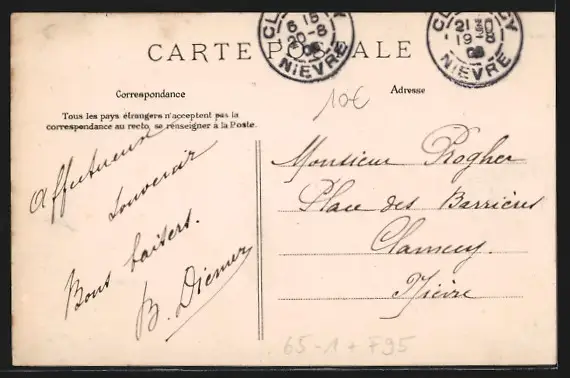 CLAMECY
6 15
20-8
08
NIÈVRE
CLAMECY
21
19-8
08
NIÈVRE
CARTE POSTALE
Correspondance
Tous les pays étrangers n'acceptent pas la
correspondance au recto, se renseigner à la Poste.
10€
Adresse
Affectueux
Souvenir
Bons baisers.
B. Diemer
Monsieur Rogher
Place des Barrières
Clamecy.
Nièvre
65-1 + F95